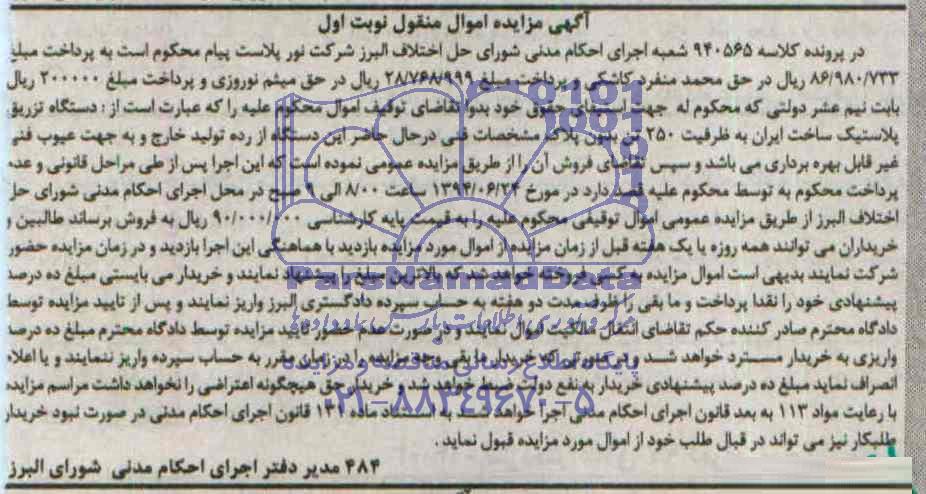 آگهی مزایده اموال منقول نوبت اول
در پرونده کلاسه ۹۴۰۵۶۵ شعبه اجرای احکام مدنی شورای حل اختلاف البرز شرکت نور پلاست پیام محکوم است به پرداخت مبلغ
۸۶/۹۸۰/۷۳۳ ریال در حق محمد منفرد کاشکی و پرداخت مبلغ ۲۸/۷۶۸/۹۹۹ ریال در حق میثم نوروزی و پرداخت مبلغ ۲۰۰۰۰۰ ریال
بابت نیم عشر دولتی که محکوم له جهت استیفای حقوق خود بدوا تقاضای توقیف اموال محکوم علیه را که عبارت است از : دستگاه تزریق
پلاستیک ساخت ایران به ظرفیت ۲۵۰ تن بدون پلاک مشخصات فنی درحال حاضر این دستگاه از رده تولید خارج و به جهت عیوب فنی
غیر قابل بهره برداری می باشد و سپس تقاضای فروش آن را از طریق مزایده عمومی نموده است که این اجرا پس از طی مراحل قانونی و عدم
پرداخت محکوم به توسط محکوم علیه قصد دارد در مورخ ۱۳۹۴/۰۶/۲۴ ساعت ۸/۰۰ الی ۹ صبح در محل اجرای احکام مدنی شورای حل
اختلاف البرز از طریق مزایده عمومی اموال توقیفی محکوم علیه را به قیمت پایه کارشناسی ۹۰/۰۰۰/۰۰۰ ریال به فروش برساند طالبین و
خریداران می توانند همه روزه یا یک هفته قبل از زمان مزایده از اموال مورد مزایده بازدید با هماهنگی این اجرا بازدید و در زمان مزایده حضور
شرکت نمایند بدیهی است اموال مزایده به کسی فروخته خواهد شد که بالاترین مبلغ را پیشنهاد نمایند و خریدار می بایستی مبلغ ده درصد
پیشنهادی خود را نقدا پرداخت و ما بقی را ظرف مدت دو هفته به حساب سپرده دادگستری البرز واریز نمایند و پس از تایید مزایده توسط
دادگاه محترم صادر کننده حکم تقاضای انتقال مالکیت اموال نمایند و در صورت عدم حضور تایید مزایده توسط دادگاه محترم مبلغ ده درصد
واریزی به خریدار مسترد خواهد شد و در صورتی که خریدار ما بقی وجه مزایده را در زمان مقرر به حساب سپرده واریز ننمایند و یا اعلام
انصراف نماید مبلغ ده درصد پیشنهادی خریدار به نفع دولت ضبط خواهد شد و خریدار حق هیچگونه اعتراضی را نخواهد داشت مراسم مزایده
با رعایت مواد ۱۱۳ به بعد قانون اجرای احکام مدنی اجرا خواهد شد به استناد ماده ۱۳۱ قانون اجرای احکام مدنی در صورت نبود خریدار
طلبکار نیز می تواند در قبال طلب خود از اموال مورد مزایده قبول نماید .
۴۸۴ مدیر دفتر اجرای احکام مدنی شورای البرز
ParsNamadData
پایگاه اطلاع رسانی مناقصه و مزایده
۰۲۱-۸۸۳۴۹۶۷۰-۵